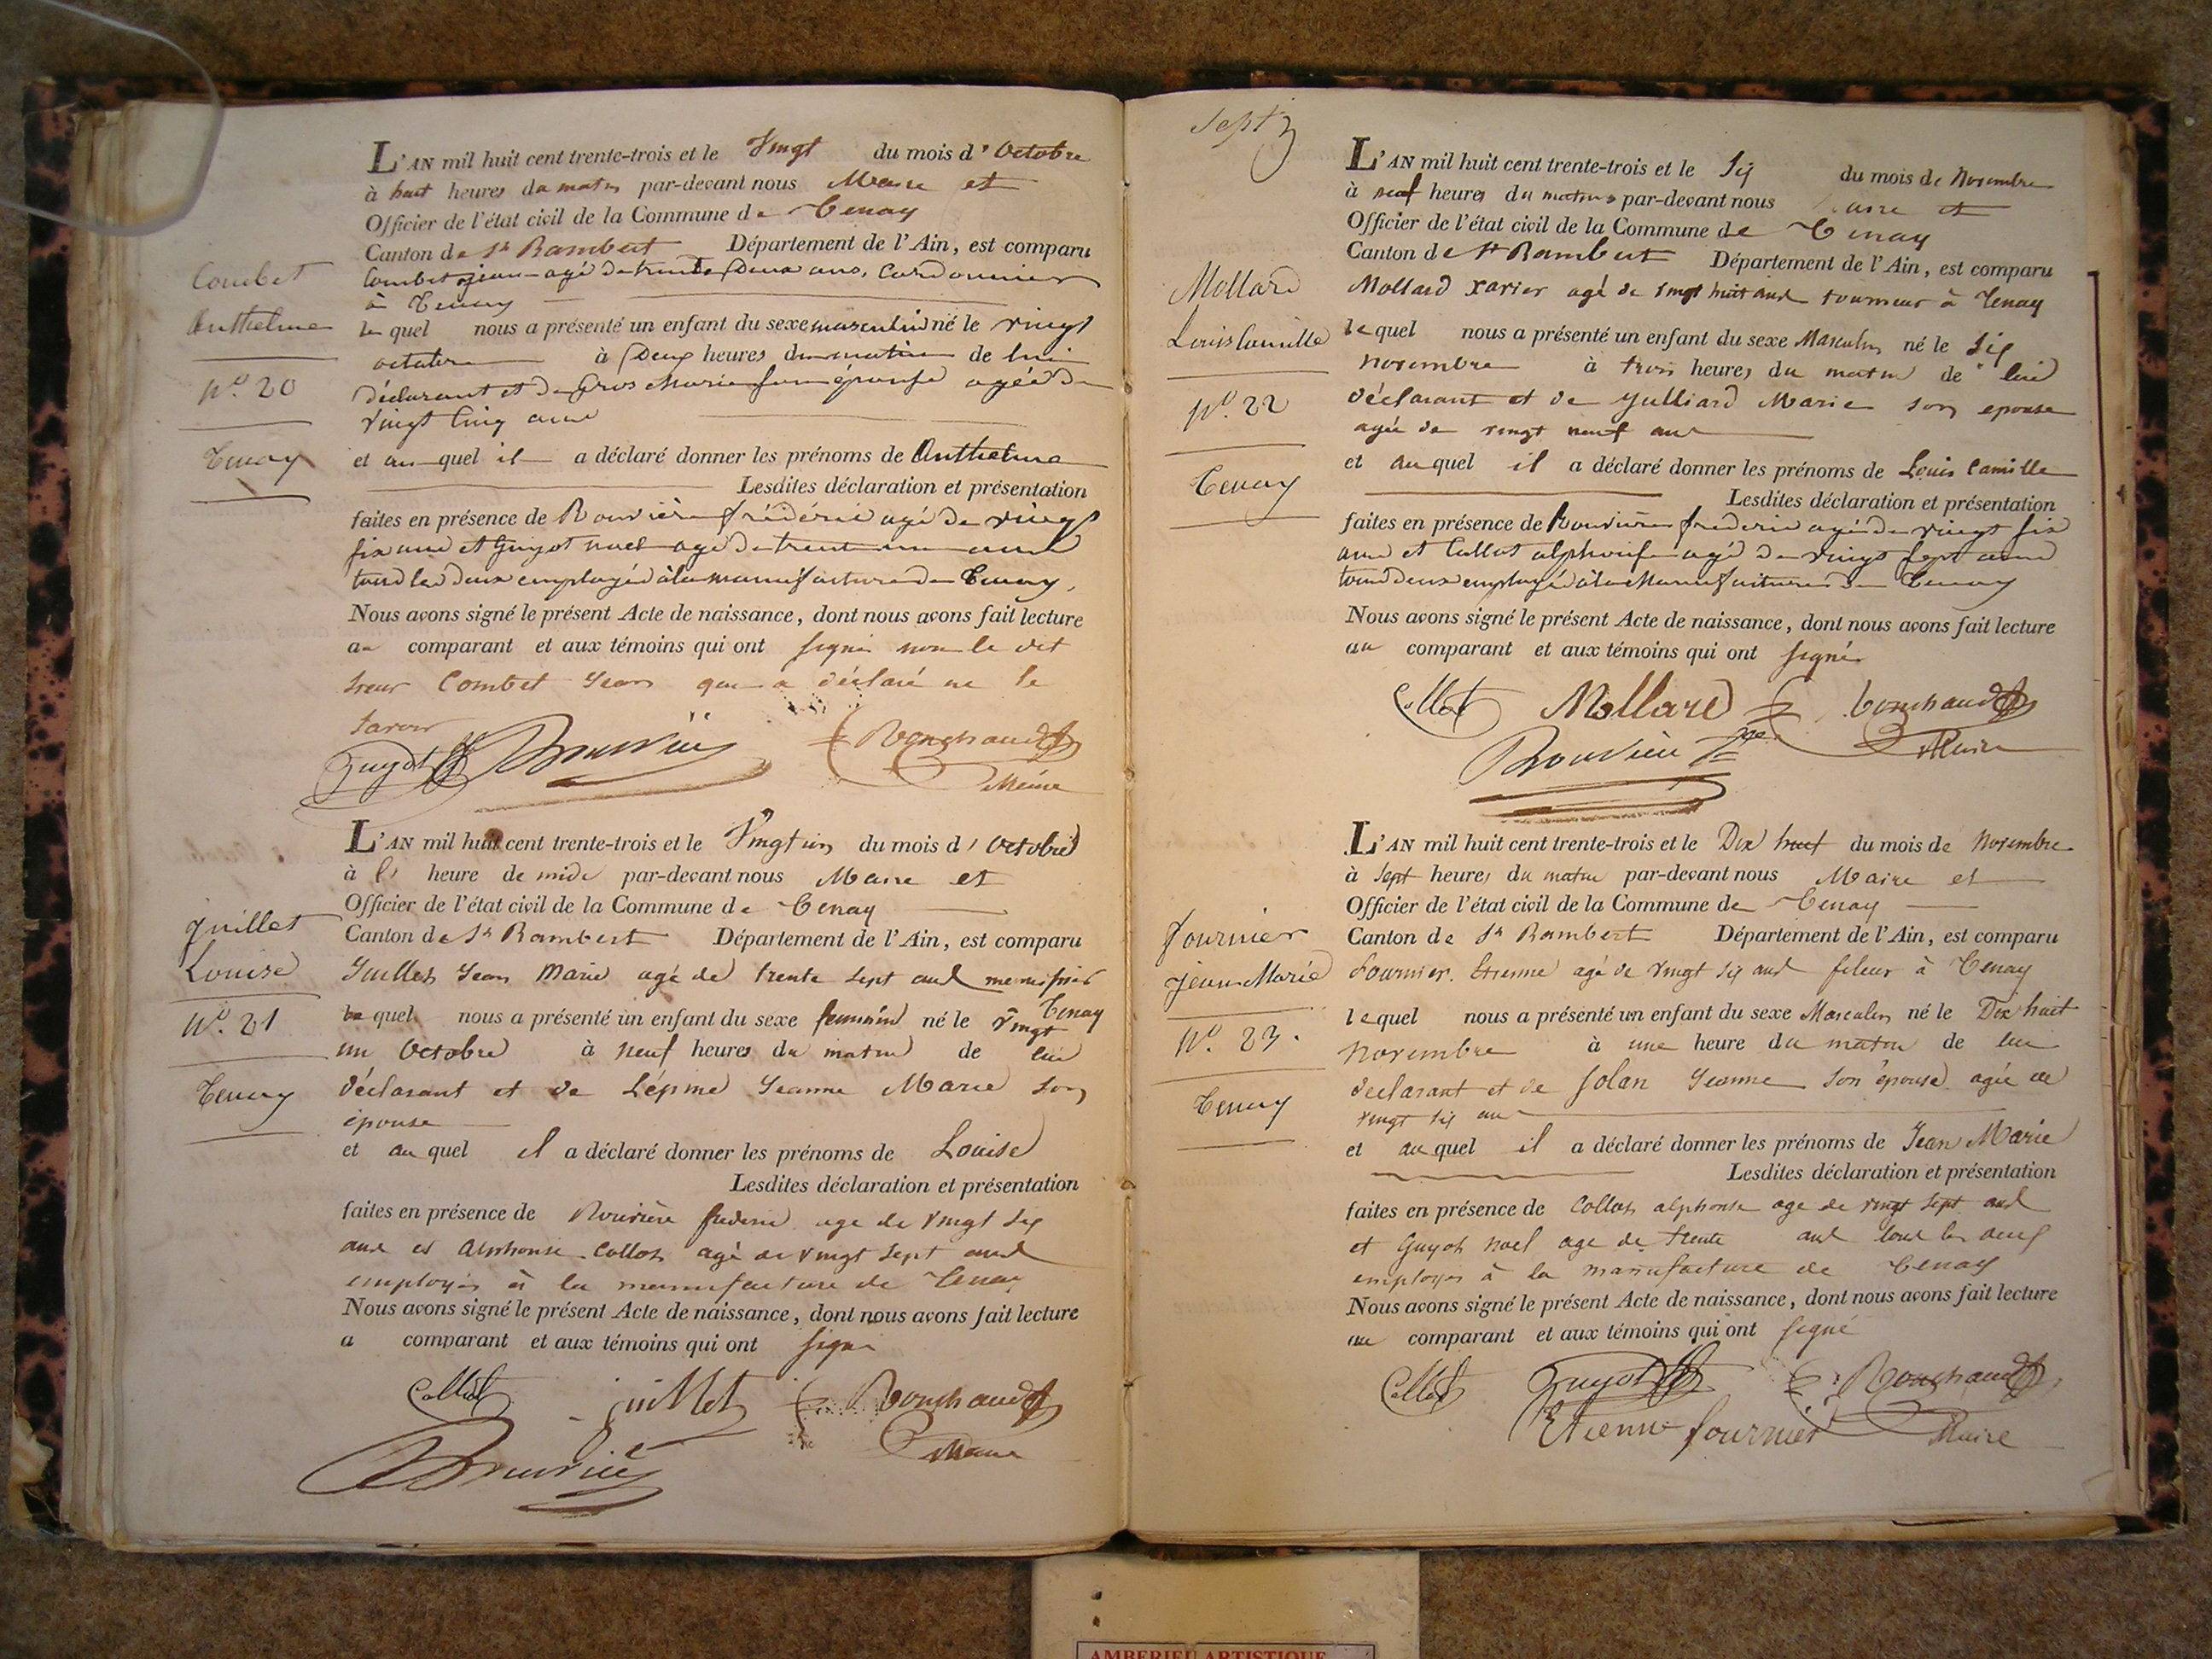 L'AN mil huit cent trente-trois et le Vingt du mois d'Octobre
à huit heures du matin par-devant nous Maire et
Officier de l'état civil de la Commune de Tenay
Canton de St Rambert Département de l'Ain, est comparu
Combet jean agé de trente deux ans, Cordonnier
à Tenay
Combet
Anthelme
N.º 20
Tenay
lequel nous a présenté un enfant du sexe masculin né le vingt
octobre à deux heures du matin de lui
déclarant et de Gros Marie son épouse agée de
vingt cinq ans
et au quel il a déclaré donner les prénoms de Anthelme
Lesdites déclaration et présentation
faites en présence de Rouvière frédéric agé de vingt
six ans et Guyot noel agé de trente un ans
tous les deux employé à la manufacture de Tenay,
Nous avons signé le présent Acte de naissance, dont nous avons fait lecture
au comparant et aux témoins qui ont signé non le dit
sieur Combet Jean qui a déclaré ne le
savoir
Guyot Rouvière Ronchaud
Maire
L'AN mil huit cent trente-trois et le Vingt un du mois d'Octobre
à heure de midi par-devant nous Maire et
Officier de l'état civil de la Commune de Tenay
Canton de St Rambert Département de l'Ain, est comparu
Juillet Jean Marie agé de trente sept ans menuisier
Tenay
Juillet
Louise
N.º 21
Tenay
lequel nous a présenté un enfant du sexe feminin né le vingt
un Octobre à neuf heures du matin de lui
déclarant et de Lépine Jeanne Marie son
épouse
et au quel il a déclaré donner les prénoms de Louise
Lesdites déclaration et présentation
faites en présence de Rouvière frederic age de vingt six
ans et Alphonse Collot agé de vingt sept ans
employés à la manufacture de Tenay
Nous avons signé le présent Acte de naissance, dont nous avons fait lecture
a comparant et aux témoins qui ont signé
Collot juillet Ronchaud
Rouvière Maire
Sept
L'AN mil huit cent trente-trois et le Six du mois de Novembre
à neuf heures du matin par-devant nous Maire et
Officier de l'état civil de la Commune de Tenay
Canton de St Rambert Département de l'Ain, est comparu
Mollard Xavier agé de vingt huit ans tourneur à Tenay
Mollard
Louis Camille
N.º 22
Tenay
lequel nous a présenté un enfant du sexe Masculin né le Six
novembre à trois heures du matin de lui
déclarant et de Julliard Marie son epouse
agée de vingt neuf ans
et au quel il a déclaré donner les prénoms de Louis Camille
Lesdites déclaration et présentation
faites en présence de Rouvière frederic agé de vingt six
ans et Collot alphonse agé de vingt sept ans
tous deux employé à la Manufacture de Tenay
Nous avons signé le présent Acte de naissance, dont nous avons fait lecture
au comparant et aux témoins qui ont signé
Collot Mollard Ronchaud
Rouvière Maire
L'AN mil huit cent trente-trois et le Dix huit du mois de Novembre
à Sept heures du matin par-devant nous Maire et
Officier de l'état civil de la Commune de Tenay
Canton de St Rambert Département de l'Ain, est comparu
Fournier Etienne agé de vingt six ans fileur à Tenay
Fournier
Jean Marie
N.º 23.
Tenay
lequel nous a présenté un enfant du sexe Masculin né le Dix huit
novembre à une heure du matin de lui
declarant et de Jolan Jeanne son épouse agée de
vingt six ans
et au quel il a déclaré donner les prénoms de Jean Marie
Lesdites déclaration et présentation
faites en présence de Collot alphonse age de vingt sept ans
et Guyot Noel age de trente ans tous les deux
employés à la manufacture de Tenay
Nous avons signé le présent Acte de naissance, dont nous avons fait lecture
au comparant et aux témoins qui ont signé
Collot Guyot Ronchaud
Etienne fournier Maire
AMBERIEU ARTISTIQUE